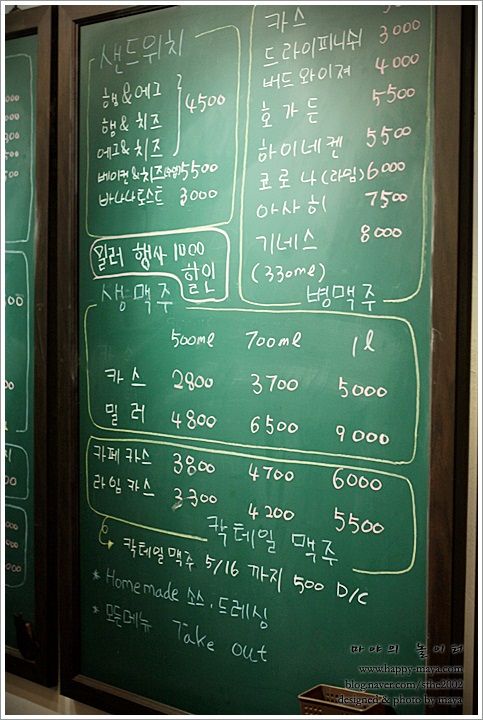 샌드위치
햄&에그
햄&치즈
에그&치즈
4500
베이컨&치즈 5500
바나나토스트 3000
밀러 행사 1000
할인
카스 3000
드라이피니쉬 3500
버드와이져 4000
호가든 5500
하이네켄 5500
코로나(라임) 6000
아사히 7500
기네스 8000
(330ml)
병맥주
생맥주
500ml 700ml 1l
카스 2800 3700 5000
밀러 4800 6500 9000
카페카스 3800 4700 6000
라임카스 3300 4200 5500
칵테일 맥주
칵테일맥주 5/16 까지 500 D/C
* Homemade 소스.드레싱
* 모든메뉴 Take out
마야의 놀이터
www.happy-maya.com
blog.naver.com/sthe2002
designed & photo by maya